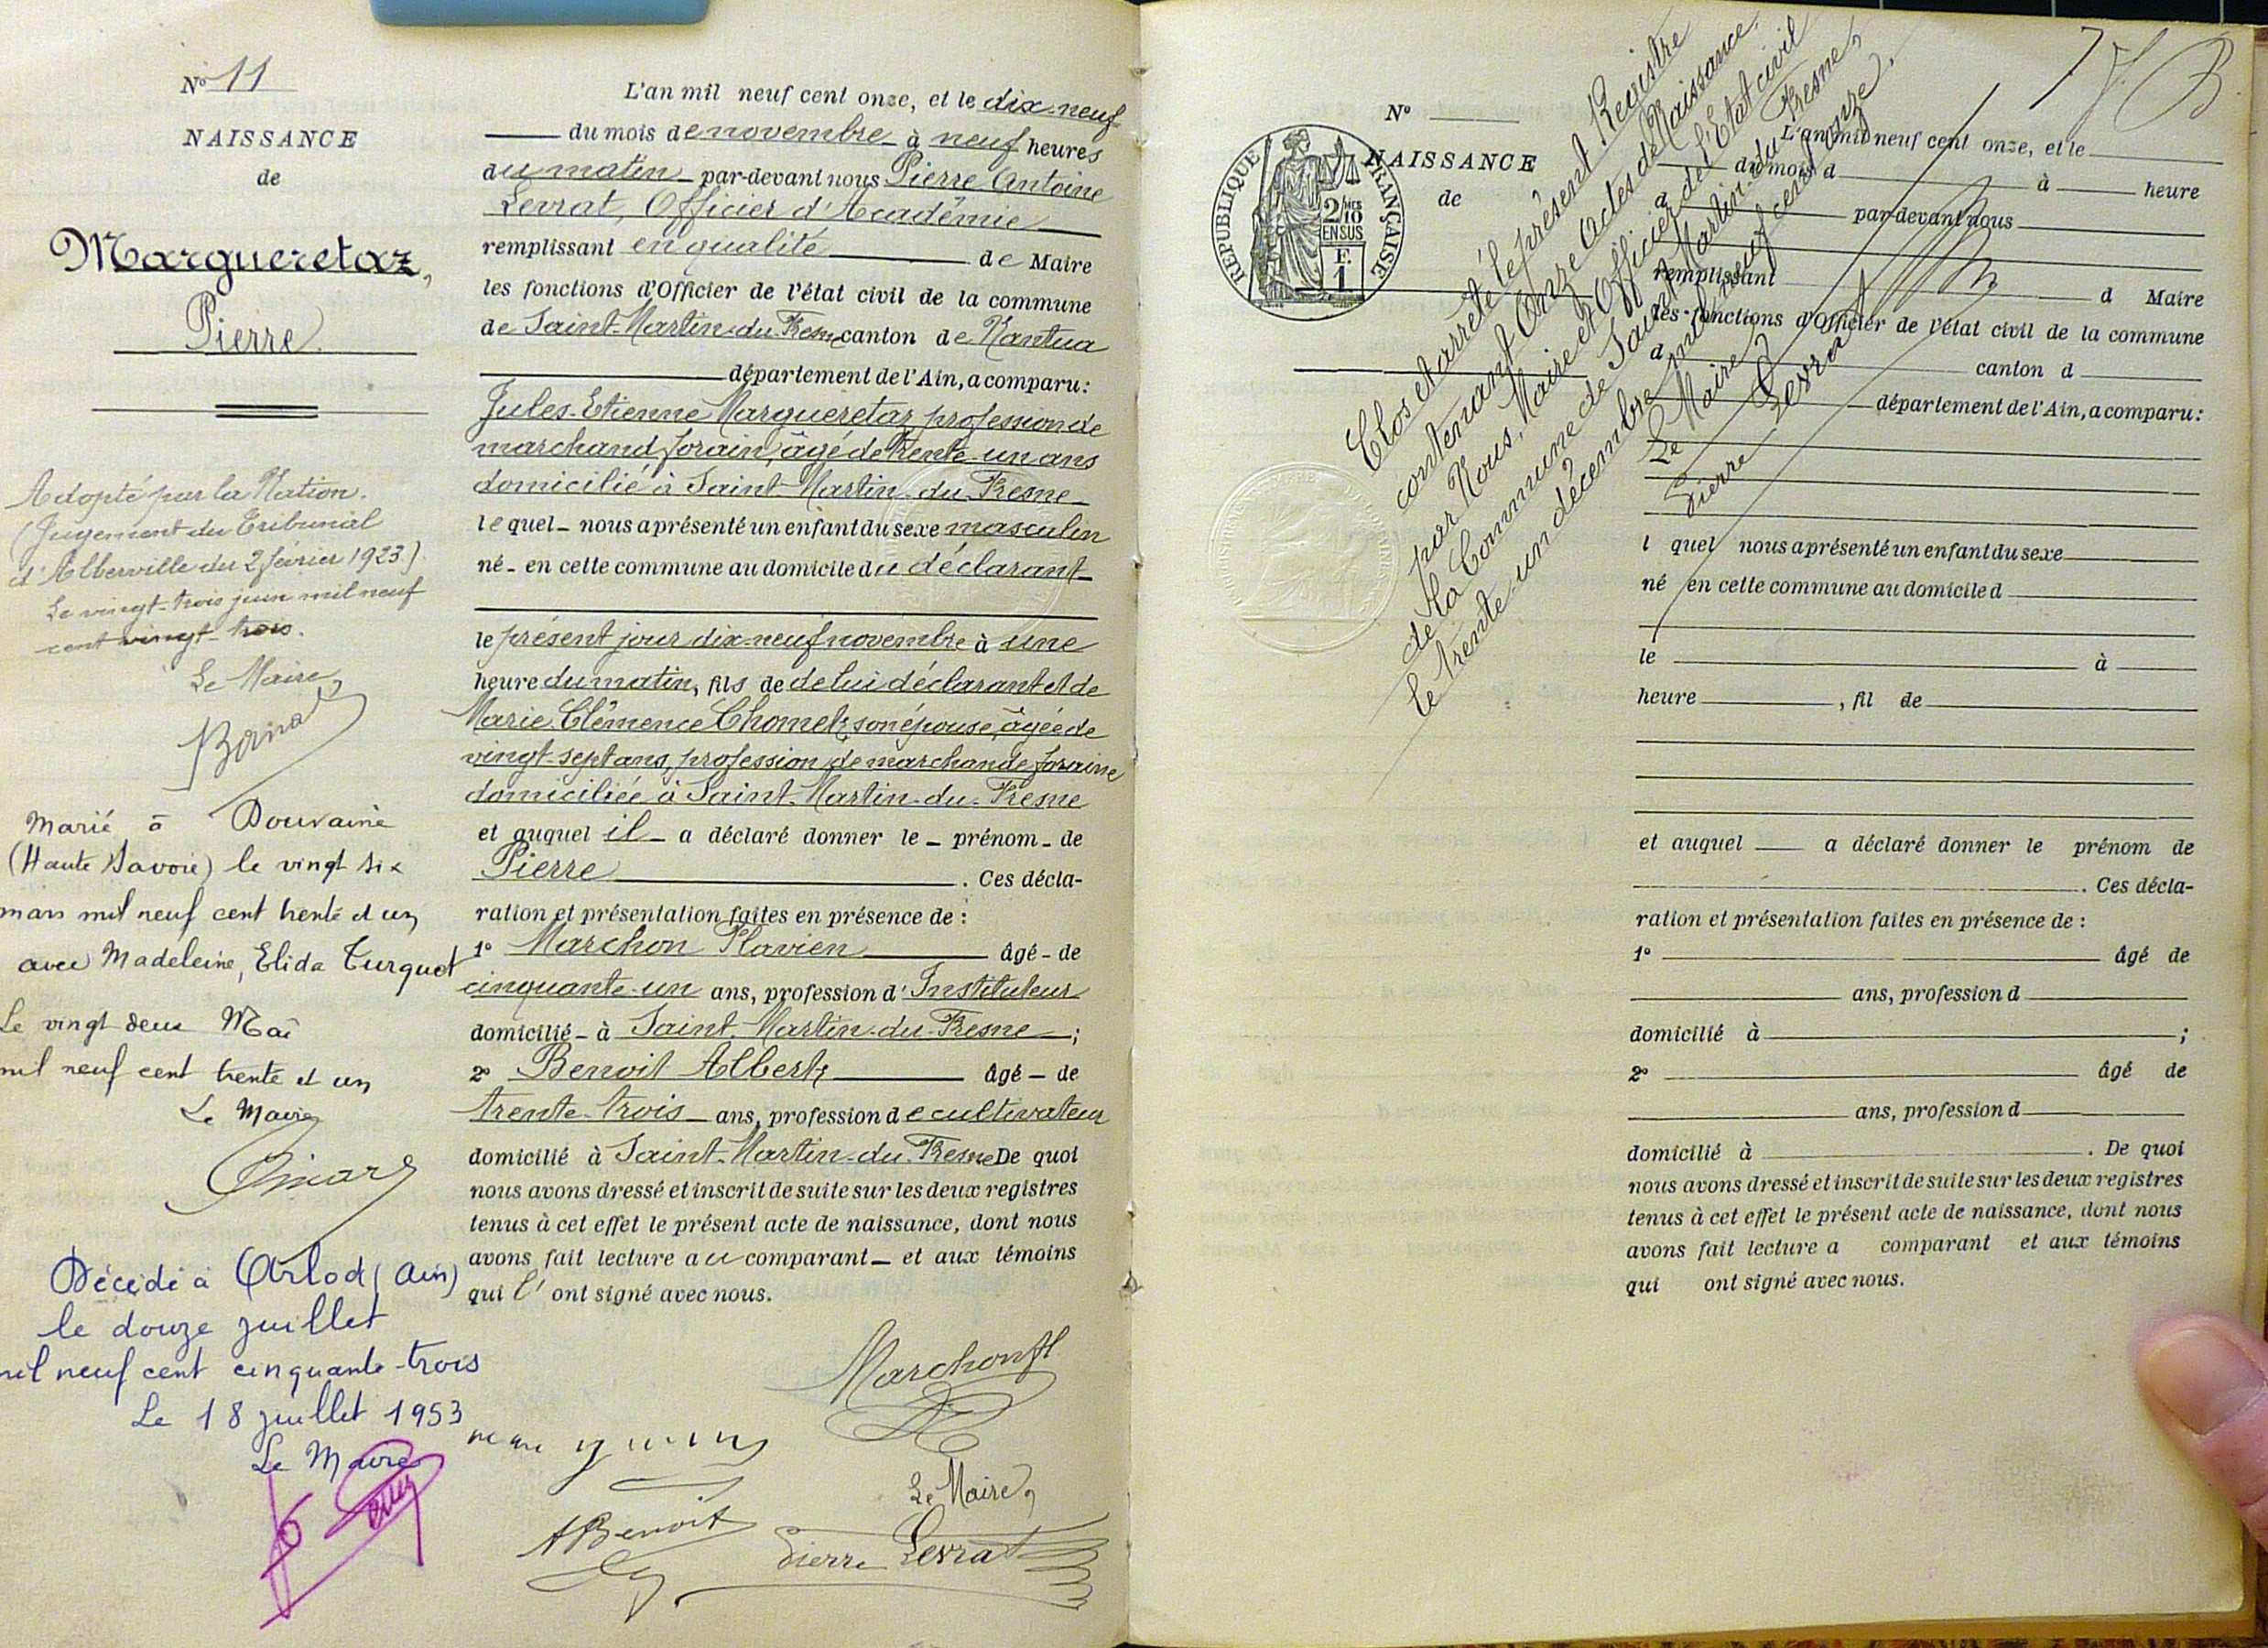 N° 11
NAISSANCE
de
Margueretaz,
Pierre
Adopté par la Nation.
(Jugement du Tribunal
d'Alberville du 2 février 1923).
Le vingt-trois juin mil neuf
cent vingt-trois.
Le Maire,
Marié à Douvaine
(Haute Savoie) le vingt six
mars mil neuf cent trente et un
avec Madeleine, Elida Turquet
Le vingt deux Mai
mil neuf cent trente et un
Le Maire
Décédé à Arlod (Ain)
le douze juillet
mil neuf cent cinquante-trois
Le 18 juillet 1953
Le Maire
L'an mil neuf cent onze, et le dix-neuf
du mois de novembre à neuf heures
du matin par-devant nous Pierre Antoine
Levrat, Officier d'Académie
remplissant en qualité de Maire
les fonctions d'Officier de l'état civil de la commune
de Saint-Martin-du-Fresne canton de Nantua
département de l'Ain, a comparu :
Jules-Etienne Margueretaz profession de
marchand forain, âgé de trente-un ans
domicilié à Saint-Martin-du-Fresne
lequel nous a présenté un enfant du sexe masculin
né en cette commune au domicile du déclarant
le présent jour dix-neuf novembre à une
heure du matin, fils de de lui déclarant et de
Marie Clémence Chomel, son épouse, âgée de
vingt-sept ans, profession de marchande foraine
domiciliée à Saint-Martin-du-Fresne
et auquel il a déclaré donner le prénom de
Pierre. Ces décla-
ration et présentation faites en présence de :
1° Marchon Flavien âgé de
cinquante-un ans, profession d'Instituteur
domicilié à Saint-Martin-du-Fresne ;
2° Benoit Albert, âgé de
trente-trois ans, profession de cultivateur
domicilié à Saint-Martin-du-Fresne De quoi
nous avons dressé et inscrit de suite sur les deux registres
tenus à cet effet le présent acte de naissance, dont nous
avons fait lecture au comparant et aux témoins
qui l'ont signé avec nous.
Marchon fl
Le Maire,
A Benoit
Pierre Levrat
N°
NAISSANCE
de
RÉPUBLIQUE FRANÇAISE
2/10
EN SUS
F.
1
Clos et arrêté le présent Registre
contenant Onze Actes de Naissance,
par Nous, Maire et Officier de l'Etat civil
de la Commune de Saint-Martin-du-Fresne,
le trente-un décembre mil neuf cent onze.
Le Maire,
Pierre Levrat
L'an mil neuf cent onze, et le
du mois d à heure
d par-devant nous
remplissant d Maire
les fonctions d'Officier de l'état civil de la commune
d canton d
département de l'Ain, a comparu :
l quel nous a présenté un enfant du sexe
né en cette commune au domicile d
le à
heure , fil de
et auquel a déclaré donner le prénom de
. Ces décla-
ration et présentation faites en présence de :
1° âgé de
ans, profession d
domicilié à ;
2° âgé de
ans, profession d
domicilié à . De quoi
nous avons dressé et inscrit de suite sur les deux registres
tenus à cet effet le présent acte de naissance, dont nous
avons fait lecture a comparant et aux témoins
qui ont signé avec nous.